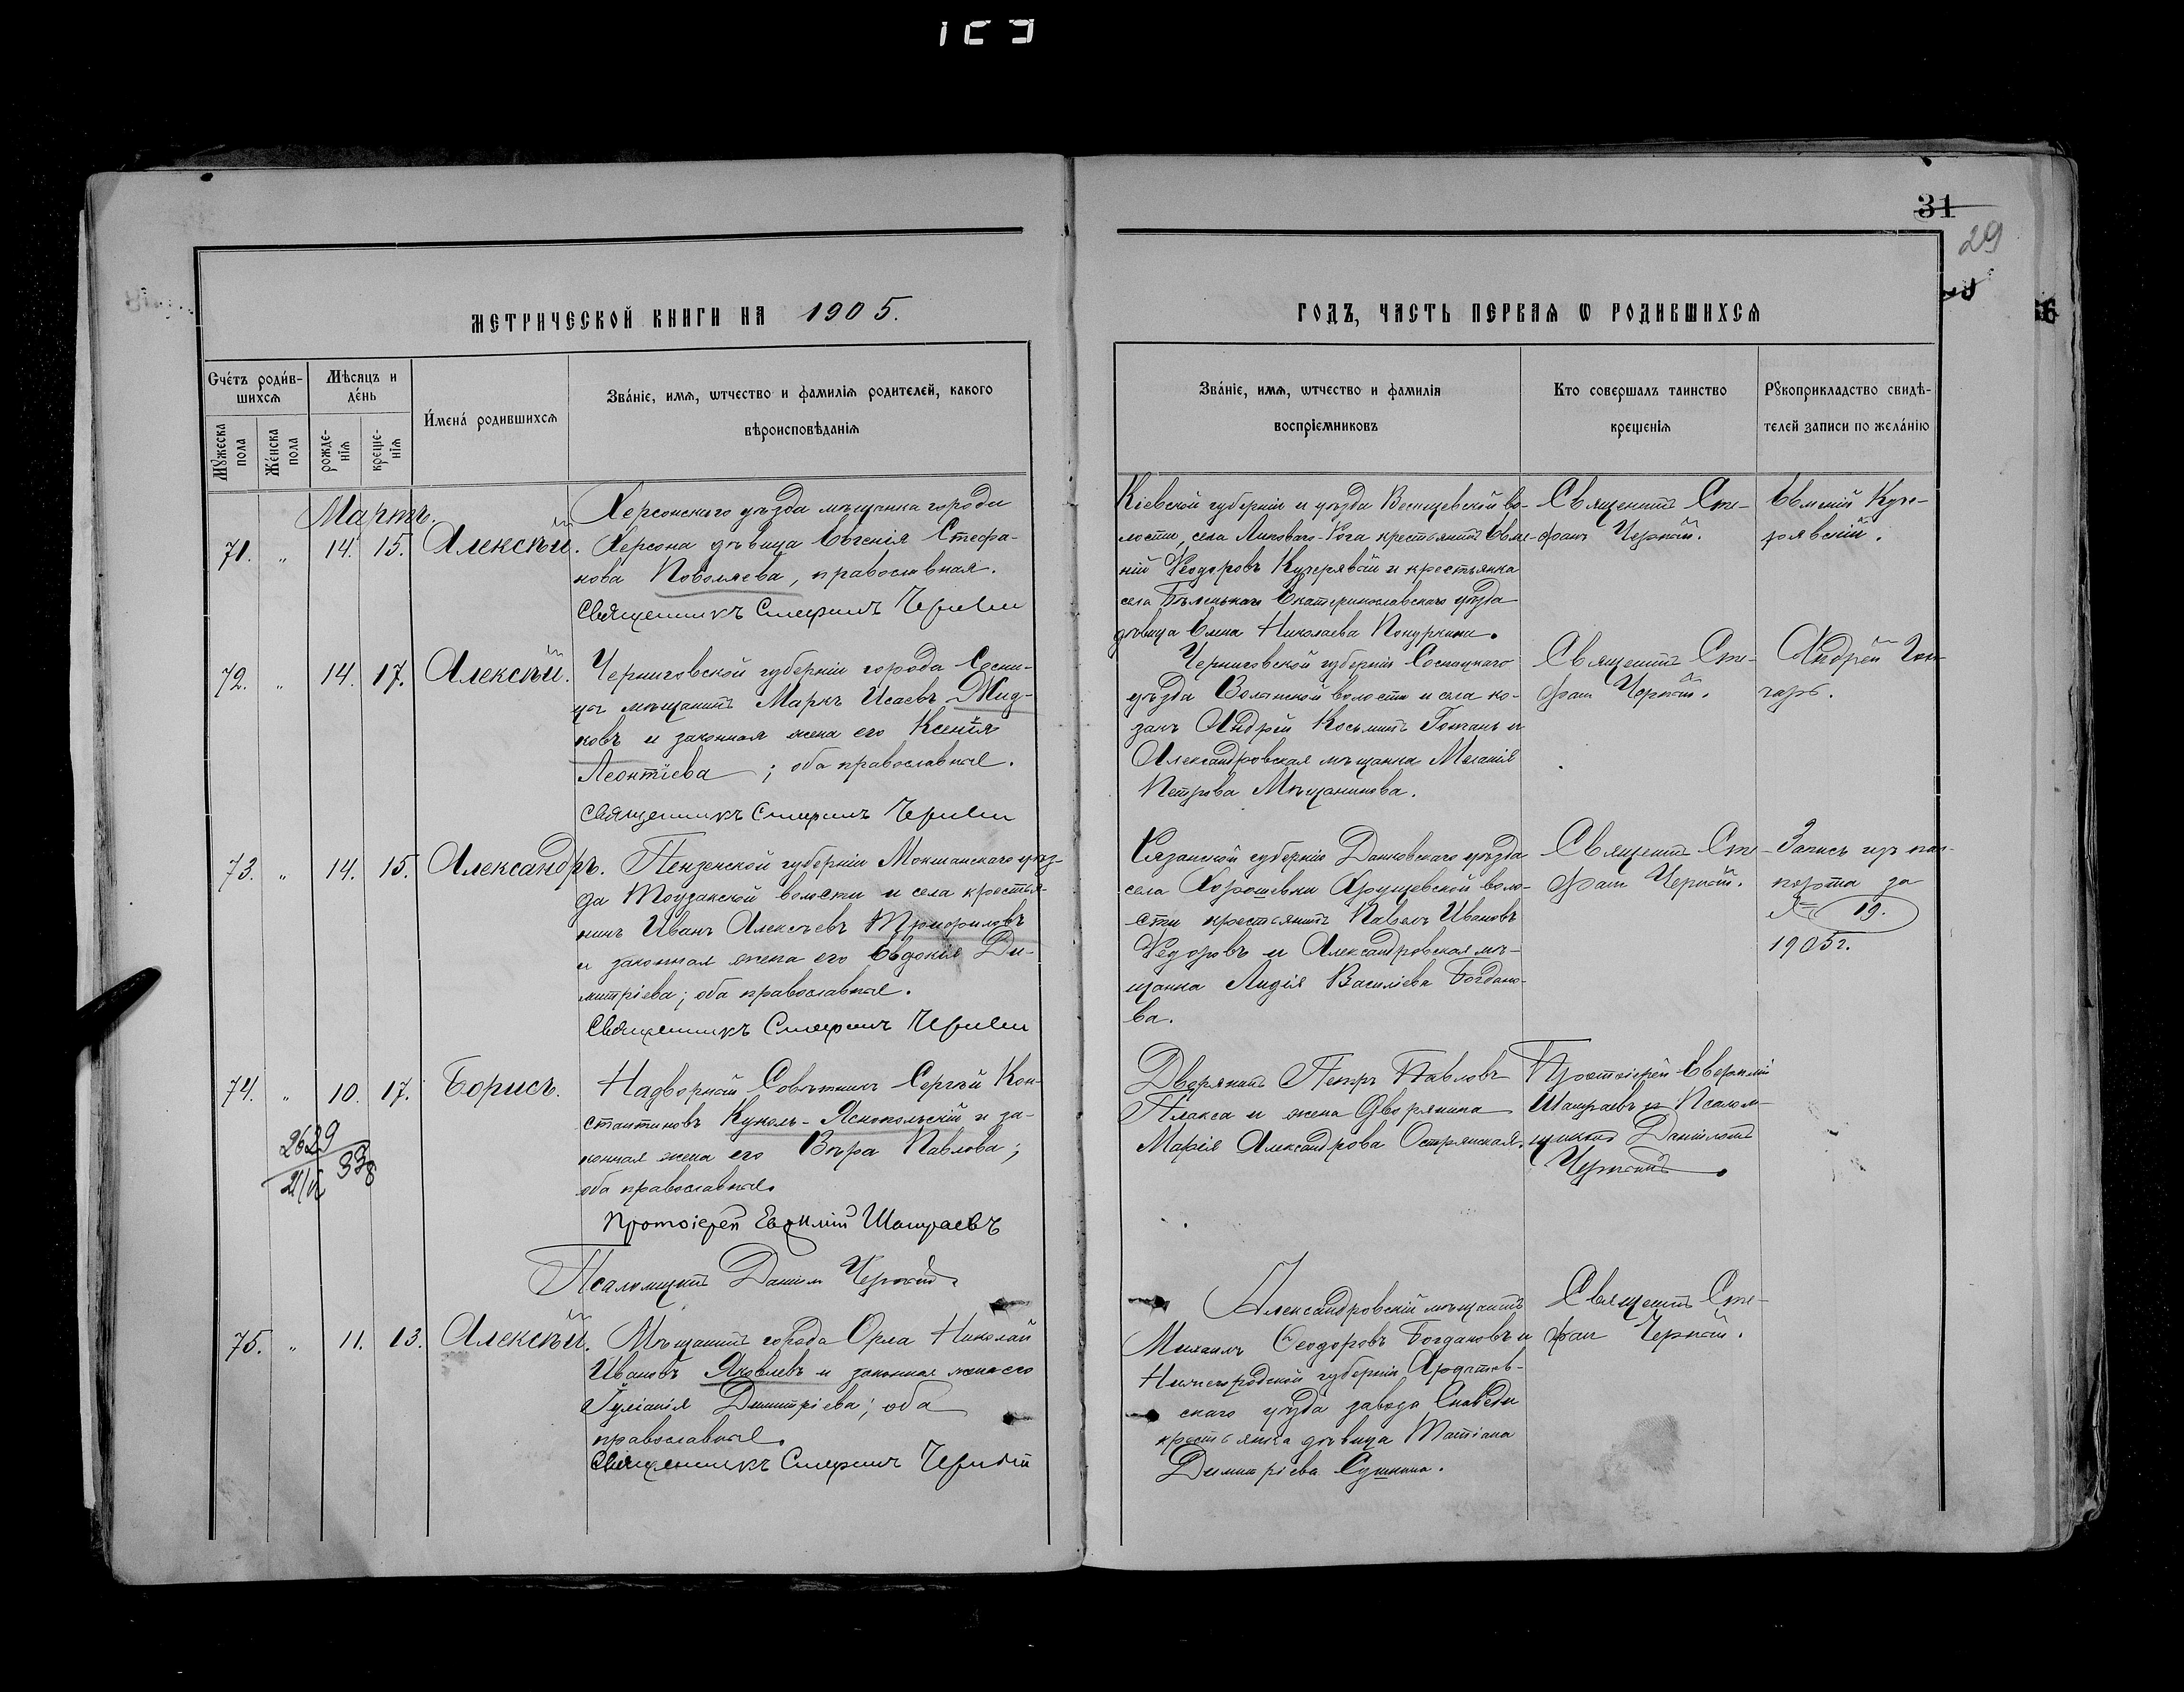 31
29
МЕТРИЧЕСКОЙ КНИГИ НА 1905.
ГОДЪ, ЧАСТЬ ПЕРВАѦ Ѡ РОДИВШИХСѦ
Счéтъ роди́в-
шихсѧ
Мѣсяцъ и
де́нь
Мꙋжеска
пола
Же́нска
пола
рожде-
нїѧ
креще-
нїѧ
И́мена́ родившихсѧ
Зва́нїе, имѧ, ѡтчество и фамилїѧ родителей, какого
вѣроисповѣданїѧ
Зва́нїе, имѧ, ѡтчество и фамилїѧ
воспрїемниковъ
Кто совершалъ таинство
крещенїѧ
Рꙋкоприкладство свидѣ-
телей записи по жела́нїю
Мартъ.
71. " 14. 15. Алексѣй.
Херсонскаго уѣзда мѣщанка города
Херсона дѣвица Евгенія Стефа-
нова Поволяева, православная.
Священникъ Стефанъ Черный
Кіевской губерніи и уѣзда
лости, села Липоваго-Рога крестьянинъ Евме-
ній Ѳеодоровъ Кучерявый и крестьянка
села Бѣленькаго Екатеринославскаго уѣзда
дѣвица Елена Николаева
Священникъ Сте-
фанъ Черный.
Евменій Куче-
рявскій.
72. " 14. 17. Алексѣй.
Черниговской губерніи города Сосни-
цы мѣщанинъ Маркъ Исаевъ Жид-
ковъ и законная жена его Ксенія
Леонтіева ; оба православные.
Священникъ Стефанъ Черный
Черниговской губерніи Сосницкаго
уѣзда Волынской волости и села ко-
закъ Андрей Косьминъ и
Александровская мѣщанка Меланія
Петрова Мѣщанинова.
Священникъ Сте-
фанъ Черный.
Андрей Гон-
чаръ.
73. " 14. 15. Александръ.
Пензенской губерніи Мокшанскаго уѣз-
да волости и села крестья-
нинъ Иванъ Алексѣевъ Трифиловъ
и законная жена его Евдокія Ди-
митріева; оба православные.
Священникъ Стефанъ Черный
Рязанской губерніи Данковскаго уѣзда
села Хорошевки Хрущевской воло-
сти крестьянинъ Павелъ Ивановъ
Ѳедоровъ и Александровская мѣ-
щанка Лидія Василіева Богдано-
ва.
Священникъ Сте-
фанъ Черный.
Запись изъ пас-
порта за
№ 19.
1905г.
74. " 10. 17. Борисъ.
2629
338
21/VI
Надворный Совѣтникъ Сергѣй Кон-
стантиновъ Куколь-Яснопольскій и за-
конная жена его Вѣра Павлова;
оба православные.
Протоіерей Евфимій Шашраевъ
Псаломщикъ Даніилъ Черный.
Дворянинъ Петръ Павловъ
Плакса и жена дворянина
Марія Александрова Острянская.
Протоіерей Евфимій
Шашраевъ и Псалом-
щикъ Даніилъ
75. " 11. 13. Алексѣй.
Мѣщанинъ города Орла Николай
Ивановъ Яковлевъ и законная жена его
Іуліанія Димитріева; оба
православные.
Священникъ Стефанъ Черный
Александровскій мѣщанинъ
Михаилъ Ѳеодоровъ Богдановъ и
Нижегородской губерніи Ардатов-
скаго уѣзда завода
крестьянка дѣвица Татіана
Димитріева Сушкина.
Священникъ Сте-
фанъ Черный.